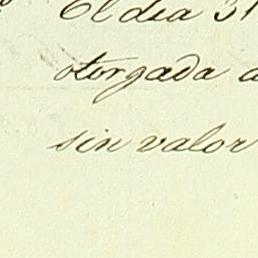 El dia 31
otorgada
sin valor